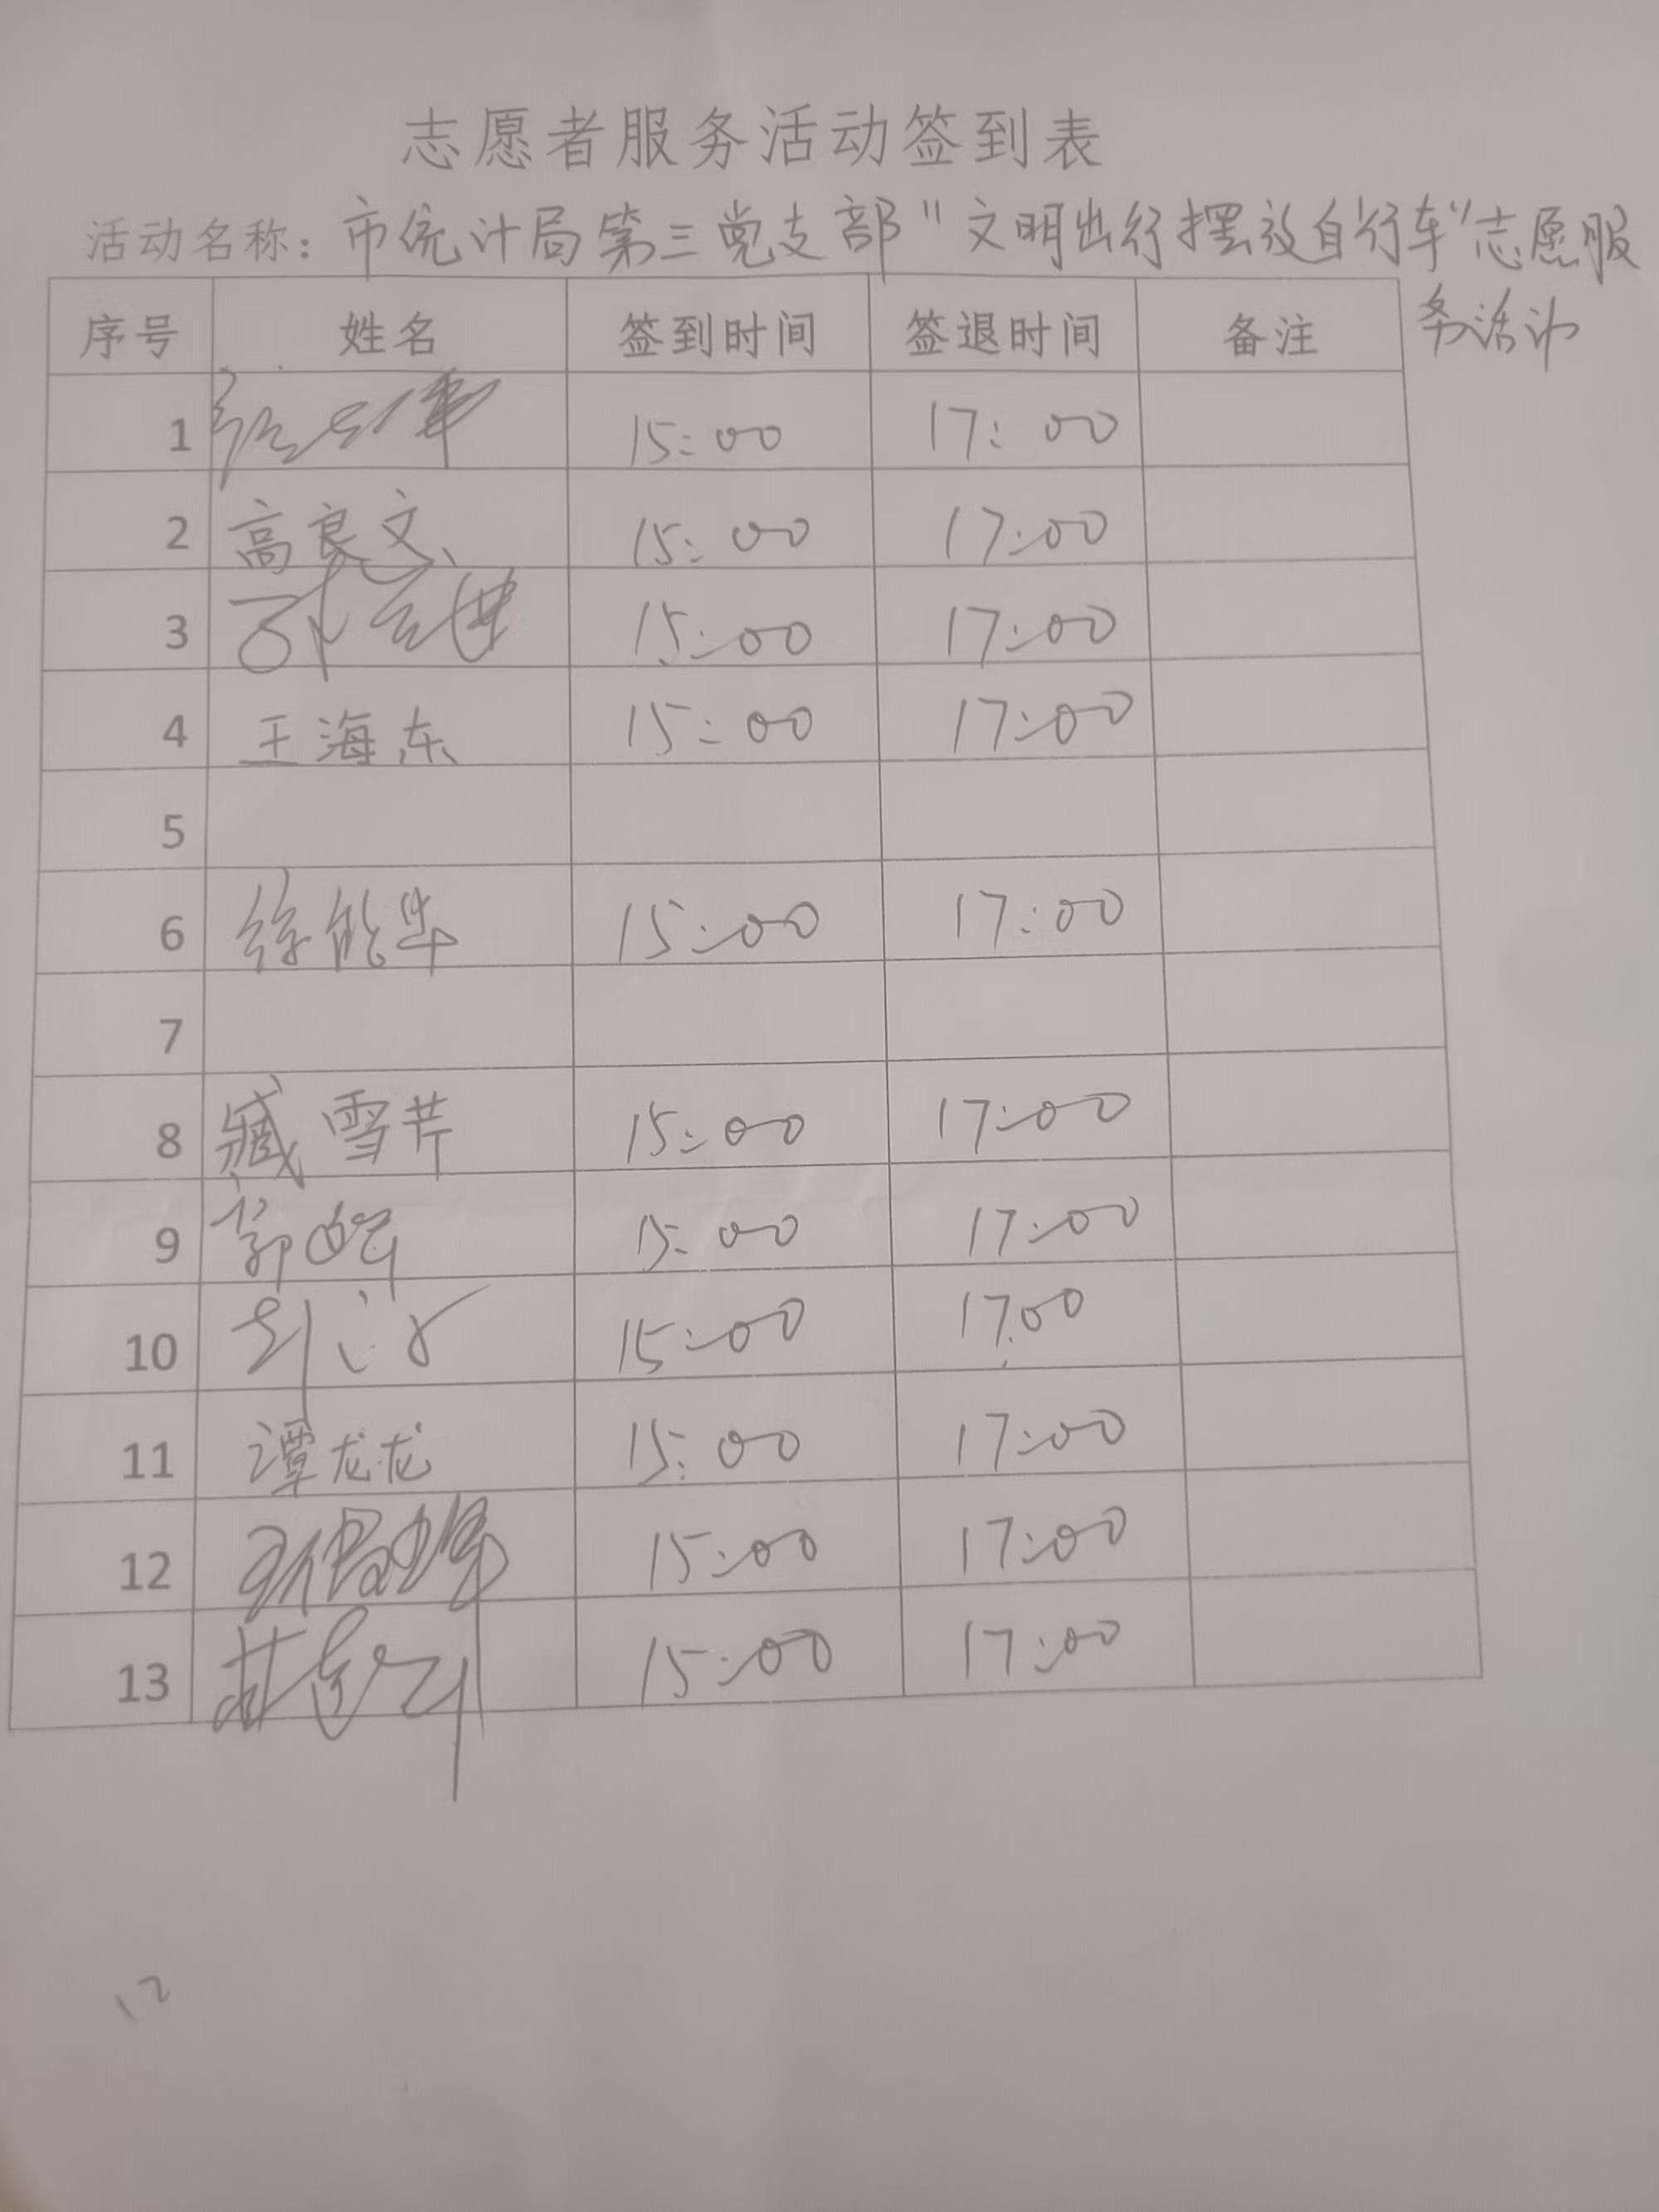 志愿者服务活动签到表
活动名称：市统计局第三党支部"文明出行摆放自行车"志愿服
务活动
序号 姓名 签到时间 签退时间 备注
1 15:00 17:00
2 高良文 15:00 17:00
3 15:00 17:00
4 王海东 15:00 17:00
5
6 徐能华 15:00 17:00
7
8 臧雪芹 15:00 17:00
9 郭皓 15:00 17:00
10 15:00 17:00
11 谭龙龙 15:00 17:00
12 15:00 17:00
13 15:00 17:00
12